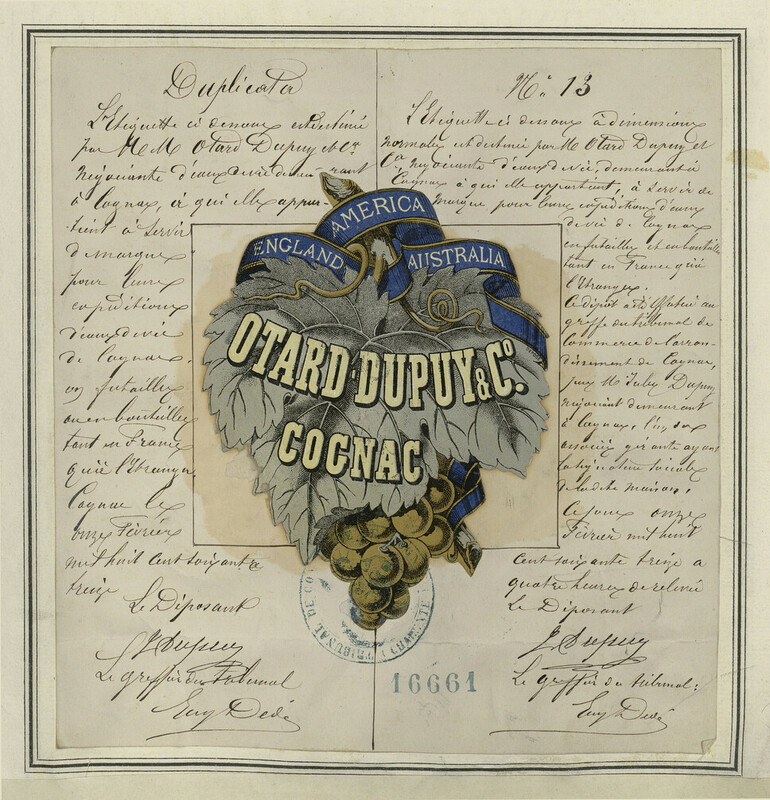 Duplicata
L'Etiquette ci dessous est destinée
par M M Otard Dupuy et Cie
négociants d'eaux de vie demeurant
à Cognac, & qui elle appar-
tient à servir
de marque
pour leurs
expéditions
d'eaux de vie
de Cognac,
en futailles
ou en bouteilles
tant en France
qu'à l'Etranger
Cognac le
onze Février
mil huit cent soixante
treize
Le Déposant
J. Dupuy
Le greffier du Tribunal
Eug Dedé
No 13
L'Etiquette ci dessous à dimensions
normales est destinée par M Otard Dupuy et
Cie négociants d'eaux de vie, demeurant à
Cognac à qui elle appartient, à servir de
marque pour leurs expéditions d'eaux
de vie de Cognac
en futailles et en bouteilles
tant en France qu'à
l'Etranger.
Ce dépôt a été effectué au
greffe du tribunal de
Commerce de l'arron-
dissement de Cognac,
par M Jules Dupuy
négociant demeurant
à Cognac, l'un des
associés gérants ayant
la signature sociale
de la dite maison,
Ce jour onze
Février mil huit
cent soixante treize à
quatre heures de relevée
Le Déposant
J. Dupuy
Le greffier du tribunal:
Eug Dedé
ENGLAND
AMERICA
AUSTRALIA
OTARD-DUPUY & Co.
COGNAC
TRIBUNAL DE CO
CHARENTE
16661